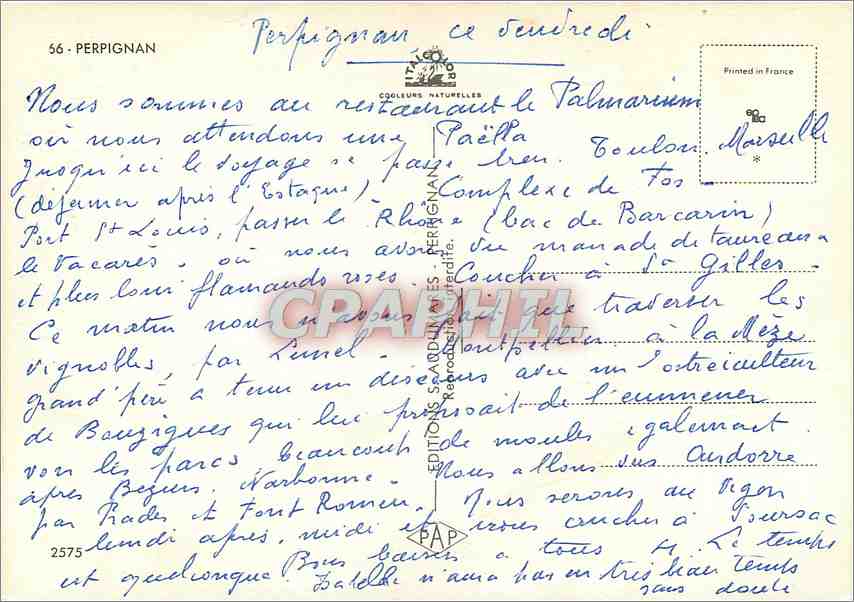 56 - PERPIGNAN
Perpignan, ce Vendredi
ITALCOLOR
COULEURS NATURELLES
Printed in France
Nous sommes au restaurant le Palmarium
où nous attendons une Paëlla
Jusqu'ici le voyage se passe bien. Toulon. Marseille
(déjeuner après l'Estaque) Complexe de Fos -
Port St Louis, passer le Rhône (bac de Barcarin)
le Vacarès. où nous avons vu manade de taureaux
et plus loin flamands roses. Coucher à St Gilles.
Ce matin nous n'avons fait que traverser les
vignobles, par Lunel. Montpellier à la Mèze
grand'père a tenu un discours avec un ostréiculteur
de Bouzigues qui lui proposait de l'emmener
voir les parcs beaucoup de moules également.
après Béziers. Narbonne. Nous allons sur Andorre
par Prades et Font Romeu. Nous serons au Vigan
lundi après-midi et irons coucher à
Bons baisers à tous Le temps
est quelconque n'aura pas eu très beau temps
sans doute
EDITIONS S.L. AUDUMARES - PERPIGNAN
Reproduction interdite.
CPAPHIL
PAP
2575